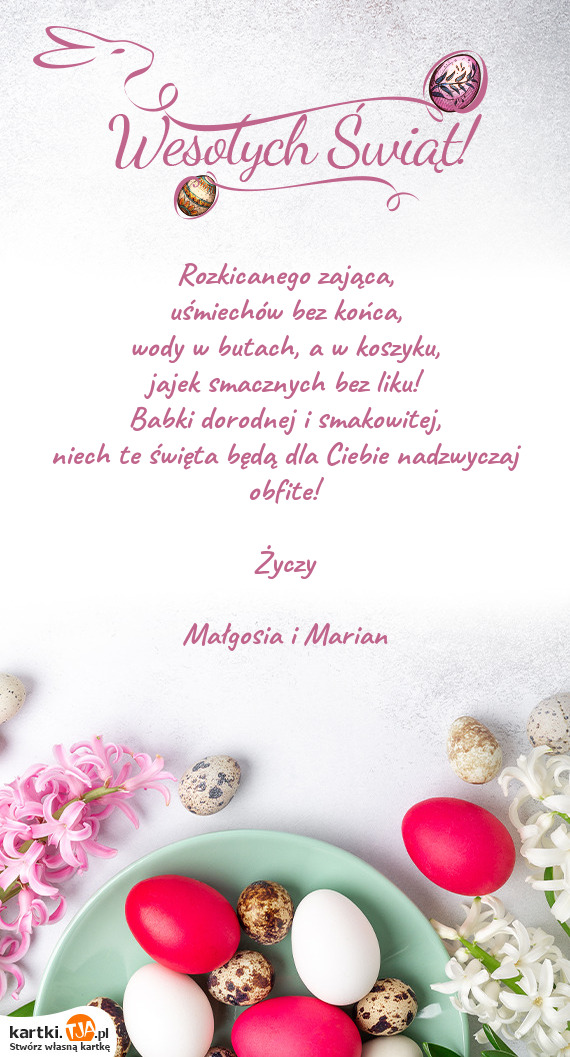 Wesołych Świąt!
Rozkicanego zająca,
uśmiechów bez końca,
wody w butach, a w koszyku,
jajek smacznych bez liku!
Babki dorodnej i smakowitej,
niech te święta będą dla Ciebie nadzwyczaj
obfite!
Życzy
Małgosia i Marian
kartki.TJA.pl
Stwórz własną kartkę